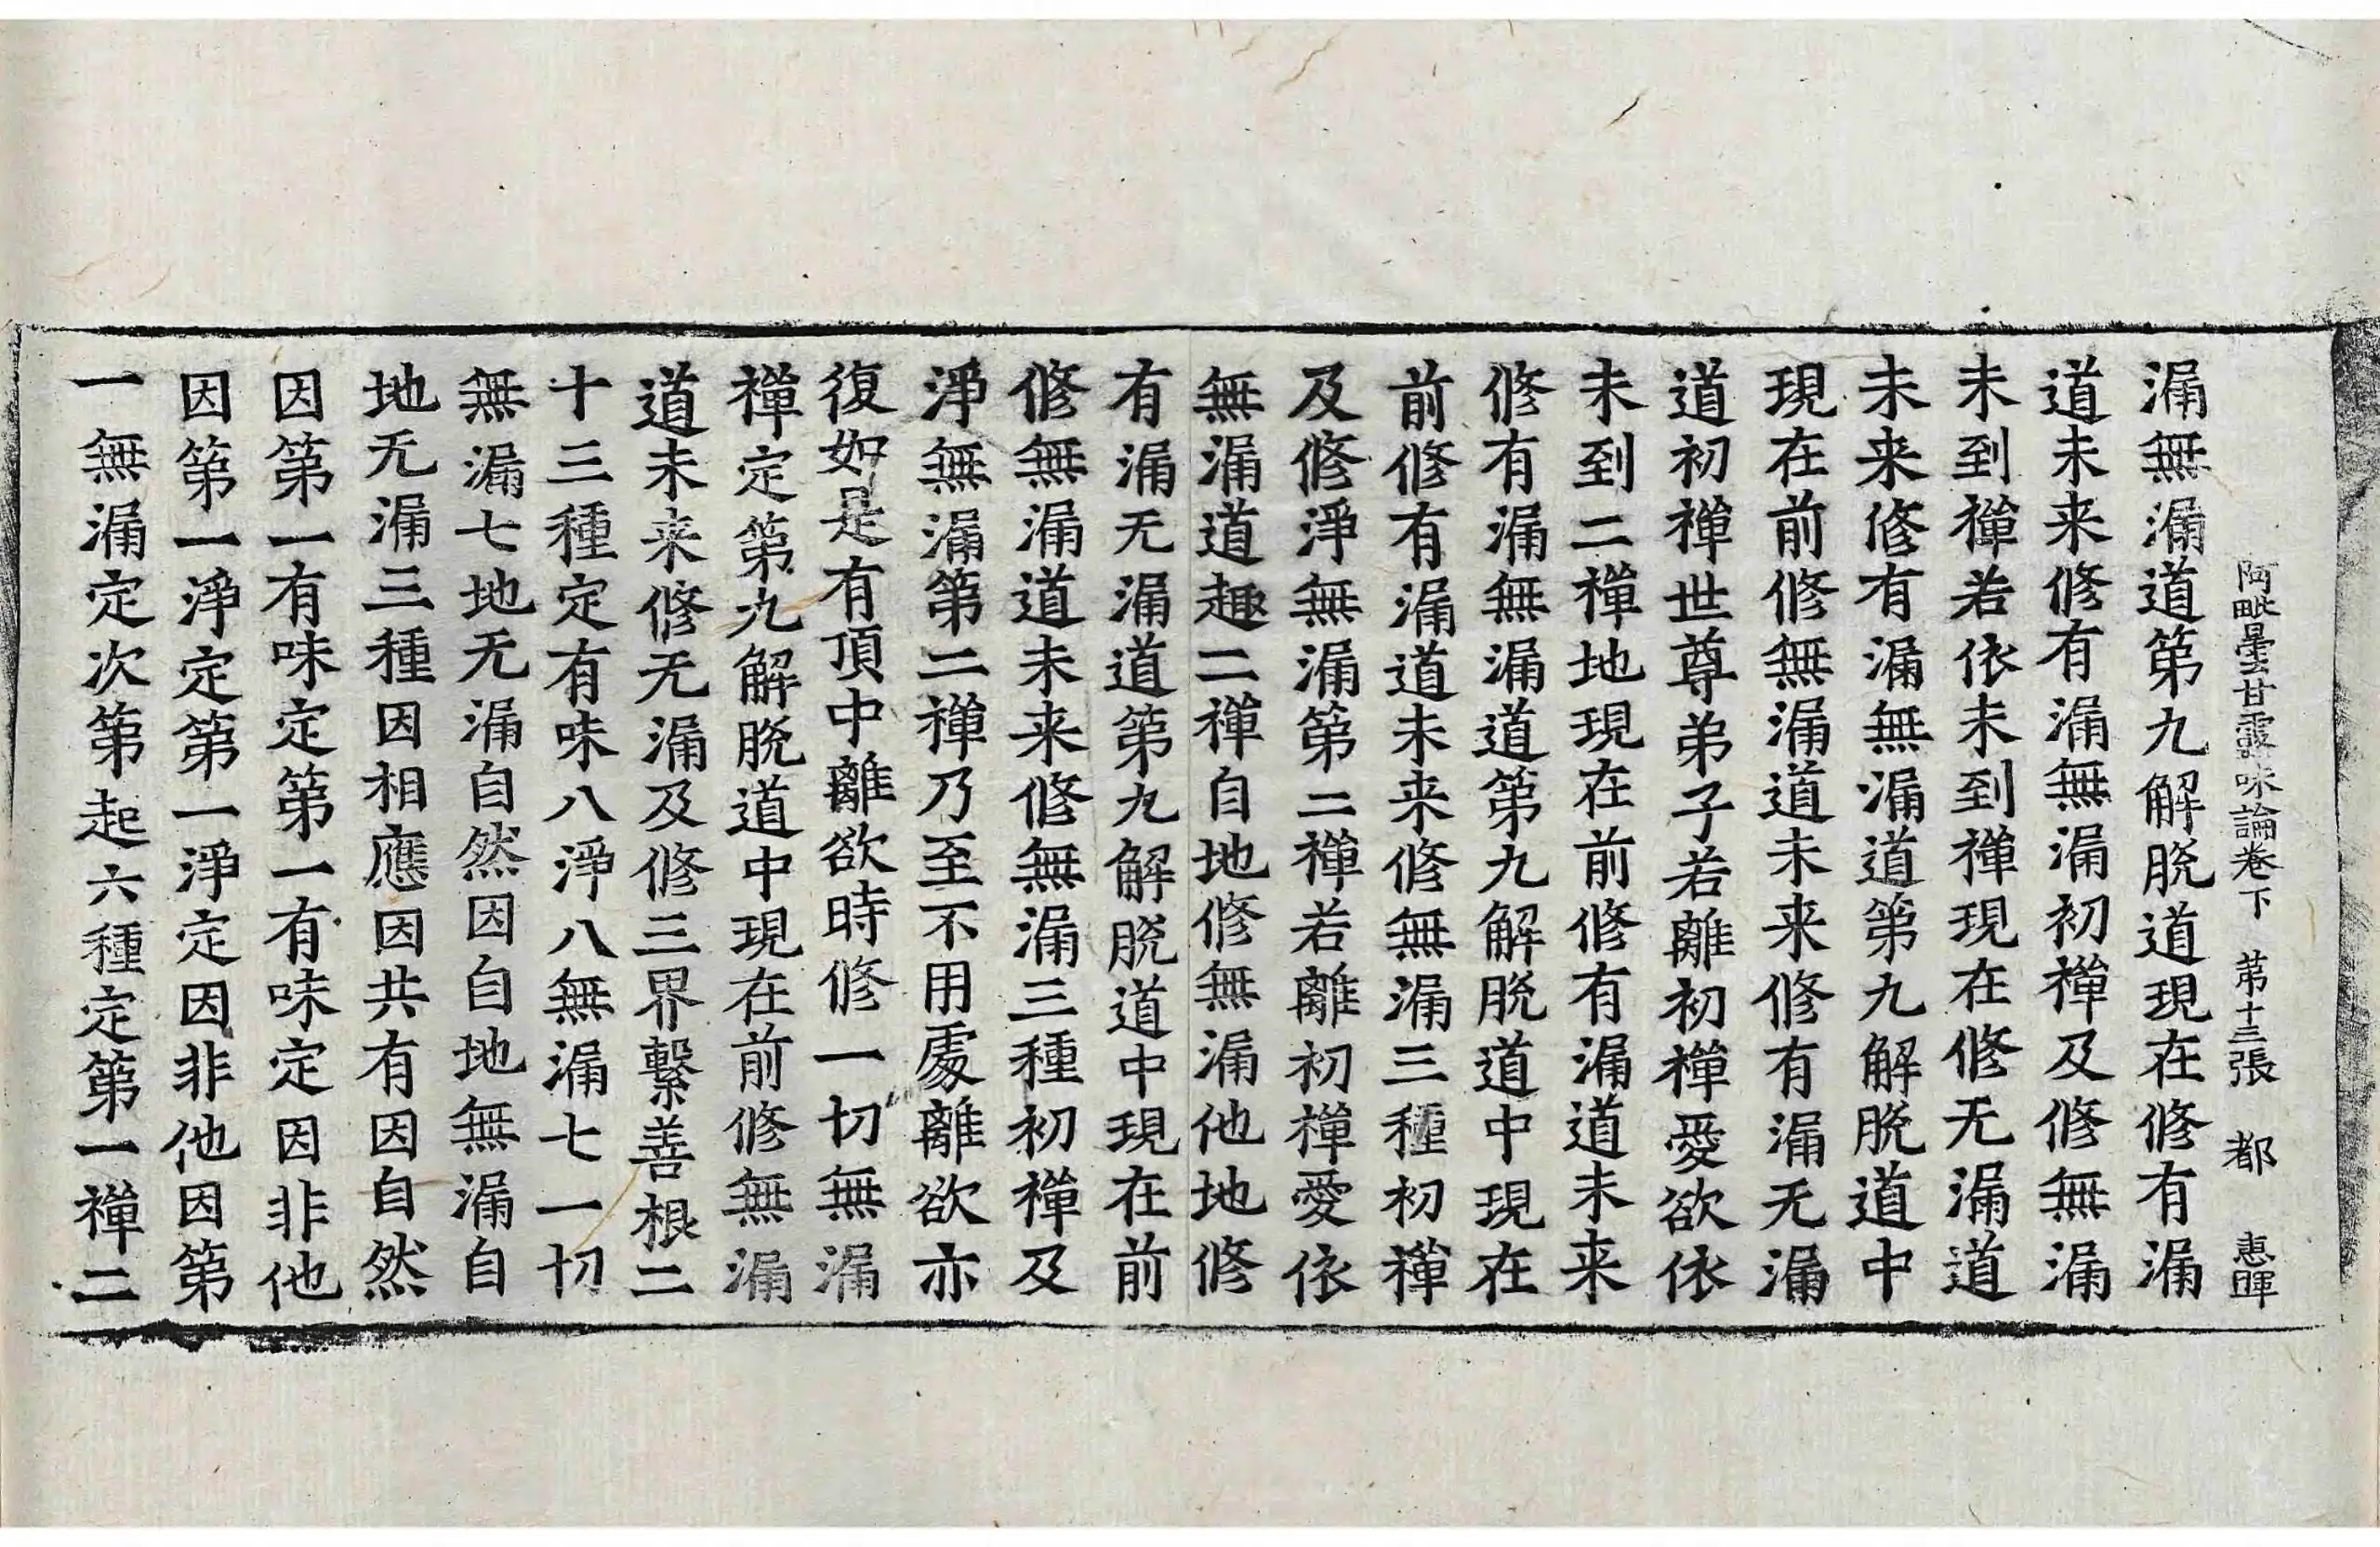 阿毗曇甘露味論卷下　第十三張　都　惠暉
漏無漏道第九解脫道現在修有漏
道未来修有漏無漏初禪及修無漏
未到禪若依未到禪現在修无漏道
未来修有漏無漏道第九解脫道中
現在前修無漏道未来修有漏无漏
道初禪世尊弟子若離初禪愛欲依
未到二禪地現在前修有漏道未来
修有漏無漏道第九解脫道中現在
前修有漏道未来修無漏三種初禪
及修淨無漏第二禪若離初禪愛依
無漏道趣二禪自地修無漏他地修
有漏无漏道第九解脫道中現在前
修無漏道未来修無漏三種初禪及
淨無漏第二禪乃至不用處離欲亦
復如是有頂中離欲時修一切無漏
禪定第九解脫道中現在前修無漏
道未来修无漏及修三界繫善根二
十三種定有味八淨八無漏七一切
無漏七地无漏自然因自地無漏自
地无漏三種因相應因共有因自然
因第一有味定第一有味定因非他
因第一淨定第一淨定因非他因第
一無漏定次第起六種定第一禪二